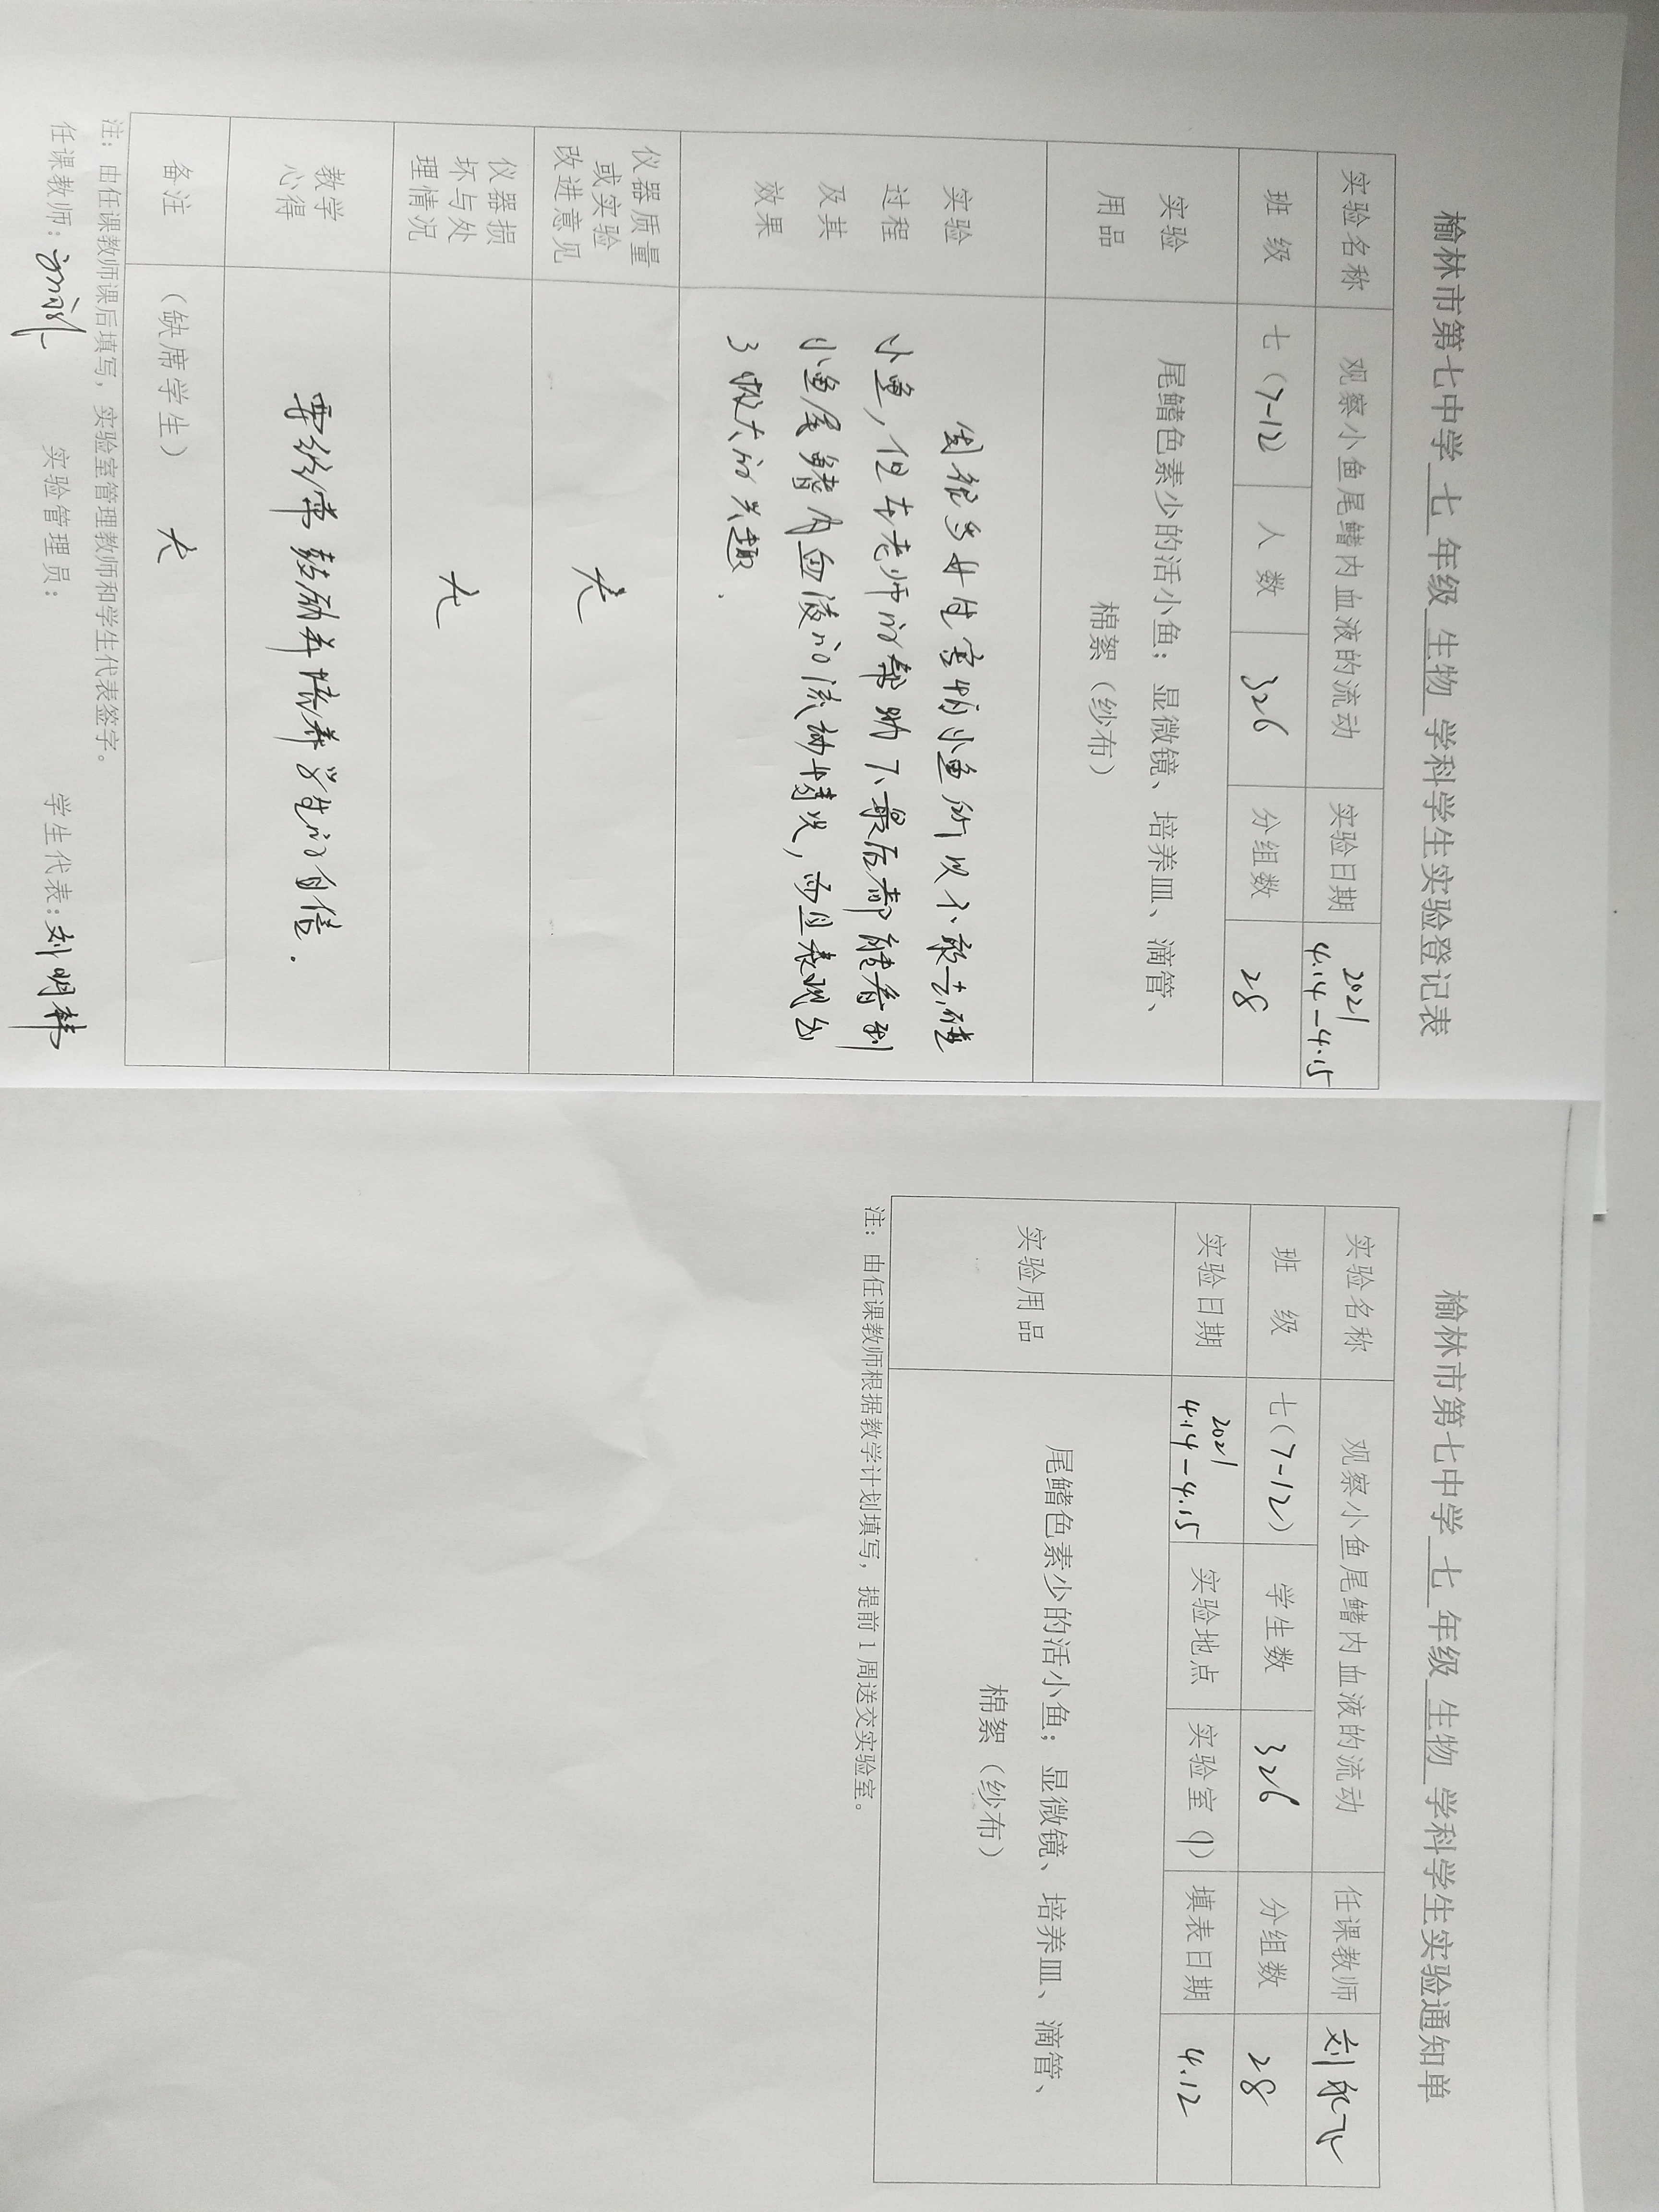 榆林市第七中学 七 年级 生物 学科学生实验登记表
实验名称 观察小鱼尾鳍内血液的流动 实验日期 2021 4.14-4.15
班 级 七(7-12) 人 数 326 分组数 28
实验 用品
尾鳍色素少的活小鱼；显微镜、培养皿、滴管、
棉絮（纱布）
实验 过程 及其 效果
很多女生害怕小鱼所以不敢去碰
小鱼，但在老师的帮助下、最后都能看到
小鱼尾鳍内血液的流动情况，而且表现出
了极大的兴趣.
仪器质量 或实验 改进意见 无
仪器损 坏与处 理情况 无
教学 心得 要经常鼓励并培养学生的自信.
备注 （缺席学生） 无
注：由任课教师课后填写，实验室管理教师和学生代表签字。
任课教师： 实验管理员： 学生代表：刘明
榆林市第七中学 七 年级 生物 学科学生实验通知单
实验名称 观察小鱼尾鳍内血液的流动 任课教师 刘
班 级 七(7-12) 学生数 326 分组数 28
实验日期 2021 4.14-4.15 实验地点 实验室（1） 填表日期 4.12
实验用品
尾鳍色素少的活小鱼；显微镜、培养皿、滴管、
棉絮（纱布）
注：由任课教师根据教学计划填写，提前1周送交实验室。